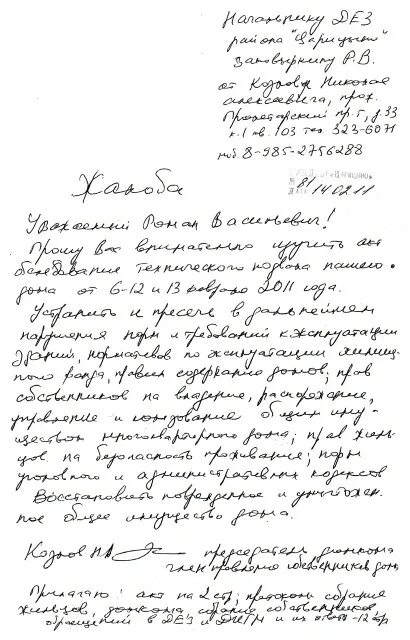 Начальнику ДЕЗ
района "Царицыно"
Р.В.
от Козлова Николая
Алексеевича, прож.
Пролетарский пр-т, д.33
к.1 кв. 103 тел. 323-6071
моб 8-985-2756288
81/14.02.11
Жалоба
Уважаемый Роман Васильевич!
Прошу Вас внимательно изучить акт
обследования технического подвала нашего
дома от 6-12 и 13 февраля 2011 года.
Устранить и пресечь в дальнейшем
нарушения норм и требований к эксплуатации
зданий, нормативов по эксплуатации жилищ-
ного фонда, правил содержания домов; прав
собственников на владение, распоряжение,
управление и пользование общим иму-
ществом многоквартирного дома; прав жиль-
цов на безопасность проживания; норм
уголовного и административных кодексов
Восстановить повреждённое и уничтожен-
ное общее имущество дома.
Козлов НА председатель домкома
член правления собственников дома
Прилагаю: акт на 2 стр; протоколы собрания
жильцов, домкома, собрания собственников
обращений в ДЕЗ и и их ответы - 12 стр